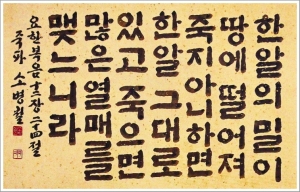 한알의 밀이
땅에 떨어져
죽지아니하면
한알 그대로
있고 죽으면
많은 열매를
맺느니라
요한복음 十二장 二十四절
죽파